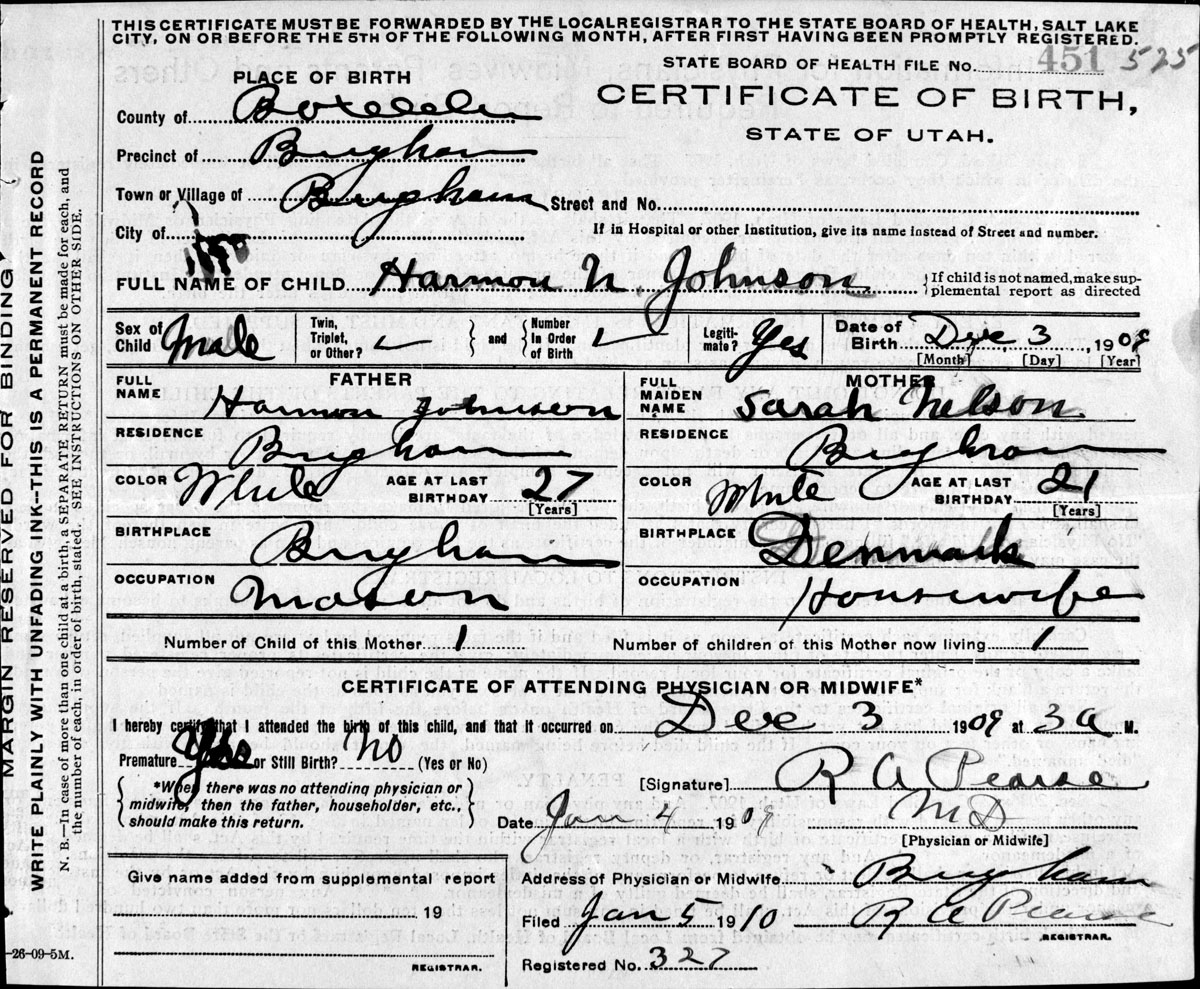 THIS CERTIFICATE MUST BE FORWARDED BY THE LOCAL REGISTRAR TO THE STATE BOARD OF HEALTH, SALT LAKE
CITY, ON OR BEFORE THE 5TH OF THE FOLLOWING MONTH, AFTER FIRST HAVING BEEN PROMPTLY REGISTERED.
PLACE OF BIRTH
STATE BOARD OF HEALTH FILE No. 451 525
CERTIFICATE OF BIRTH,
STATE OF UTAH.
County of Boxelder
Precinct of Brigham
Town or Village of Brigham Street and No.
City of If in Hospital or other Institution, give its name instead of Street and number.
FULL NAME OF CHILD Harmon N. Johnson {If child is not named, make sup-
plemental report as directed
Sex of Child Male Twin, Triplet, or Other? ✓ } and { Number In Order of Birth 1 Legiti-mate? Yes Date of Birth Dec 3, 1909
[Month] [Day] [Year]
FATHER MOTHER
FULL NAME Harmon Johnson FULL MAIDEN NAME Sarah Nelson
RESIDENCE Brigham RESIDENCE Brigham
COLOR White AGE AT LAST BIRTHDAY 27 [Years] COLOR White AGE AT LAST BIRTHDAY 21 [Years]
BIRTHPLACE Brigham BIRTHPLACE Denmark
OCCUPATION Mason OCCUPATION Housewife
Number of Child of this Mother 1 Number of children of this Mother now living 1
CERTIFICATE OF ATTENDING PHYSICIAN OR MIDWIFE*
I hereby certify that I attended the birth of this child, and that it occurred on Dec 3 1909 at 3 a M.
Premature Yes or Still Birth? No (Yes or No)
[Signature] R A Pearse
*When there was no attending physician or
midwife, then the father, householder, etc.,
should make this return.
Date Jan 4 1909 MD
[Physician or Midwife]
Give name added from supplemental report
Address of Physician or Midwife Brigham
19
Filed Jan 5 1910 R A Pearse
REGISTRAR.
REGISTRAR.
Registered No. 327
-26-09-5M.
MARGIN RESERVED FOR BINDING
WRITE PLAINLY WITH UNFADING INK--THIS IS A PERMANENT RECORD
N. B.—In case of more than one child at a birth, a SEPARATE RETURN must be made for each, and
the number of each, in order of birth, stated. SEE INSTRUCTIONS ON OTHER SIDE.